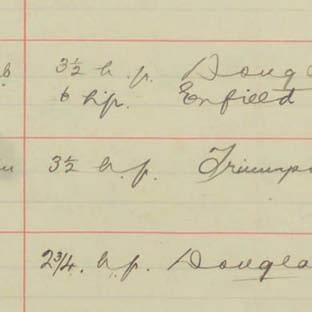 3½ h.p. Doug
6 h.p. Enfield
3½ h.p. Triump
2¾. h.p. Dougla